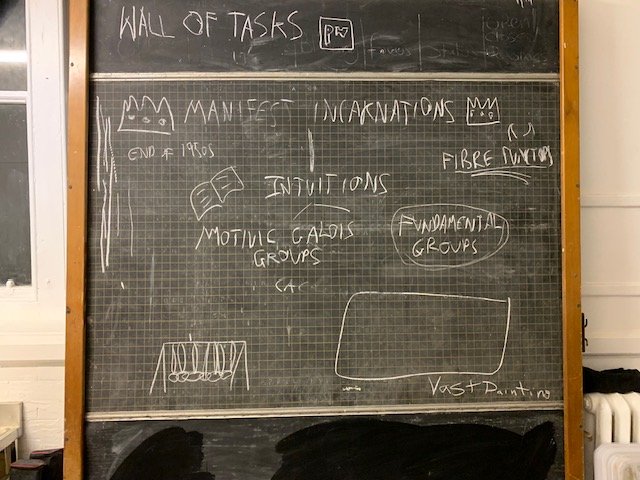 WALL OF TASKS
MANIFEST INCARNATIONS
END OF 1950S
FIBRE FUNCTORS
INTUITIONS
MOTIVIC GALOIS
GROUPS
FUNDAMENTAL
GROUPS
Vast Painting